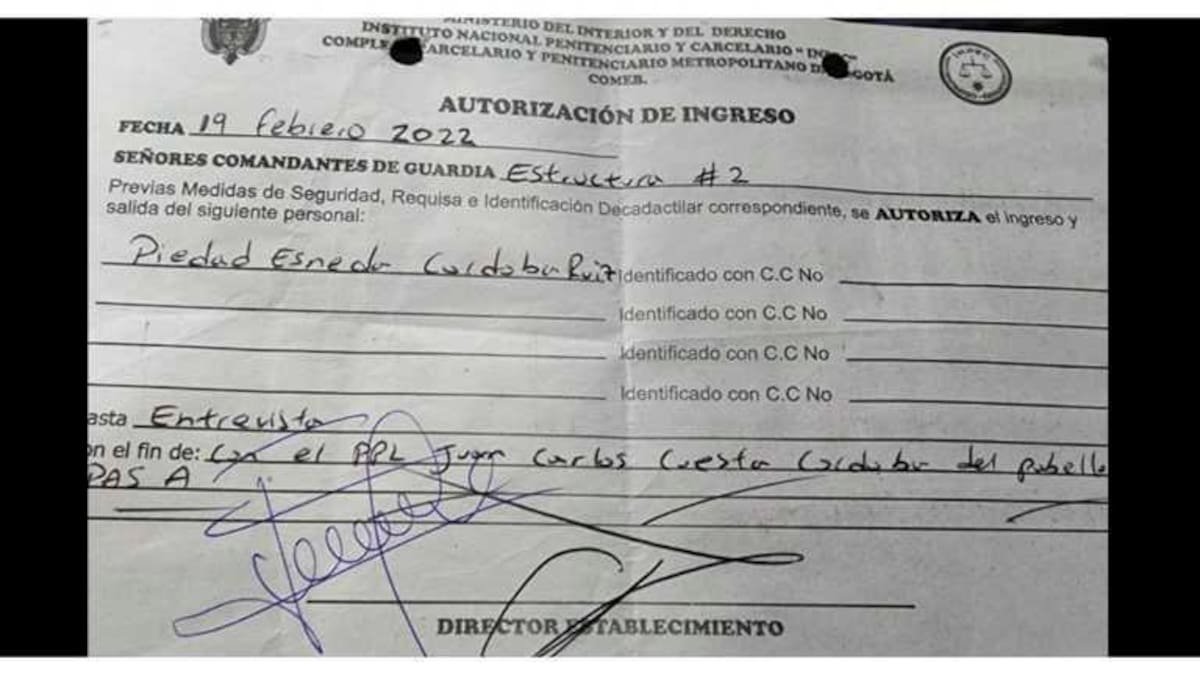 MINISTERIO DEL INTERIOR Y DEL DERECHO
INSTITUTO NACIONAL PENITENCIARIO Y CARCELARIO "
CARCELARIO Y PENITENCIARIO METROPOLITANO
COMEB.
AUTORIZACIÓN DE INGRESO
FECHA 19 febrero 2022
SEÑORES COMANDANTES DE GUARDIA Estructura #2
Previas Medidas de Seguridad, Requisa e Identificación Decadactilar correspondiente, se AUTORIZA el ingreso y
salida del siguiente personal:
Piedad Esneda Cordoba Ruiz Identificado con C.C No
Identificado con C.C No
Identificado con C.C No
Identificado con C.C No
asta Entrevista
on el fin de: Con el PPL Juan Carlos Cuesta Cordoba del pabello
PAS A
DIRECTOR ESTABLECIMIENTO